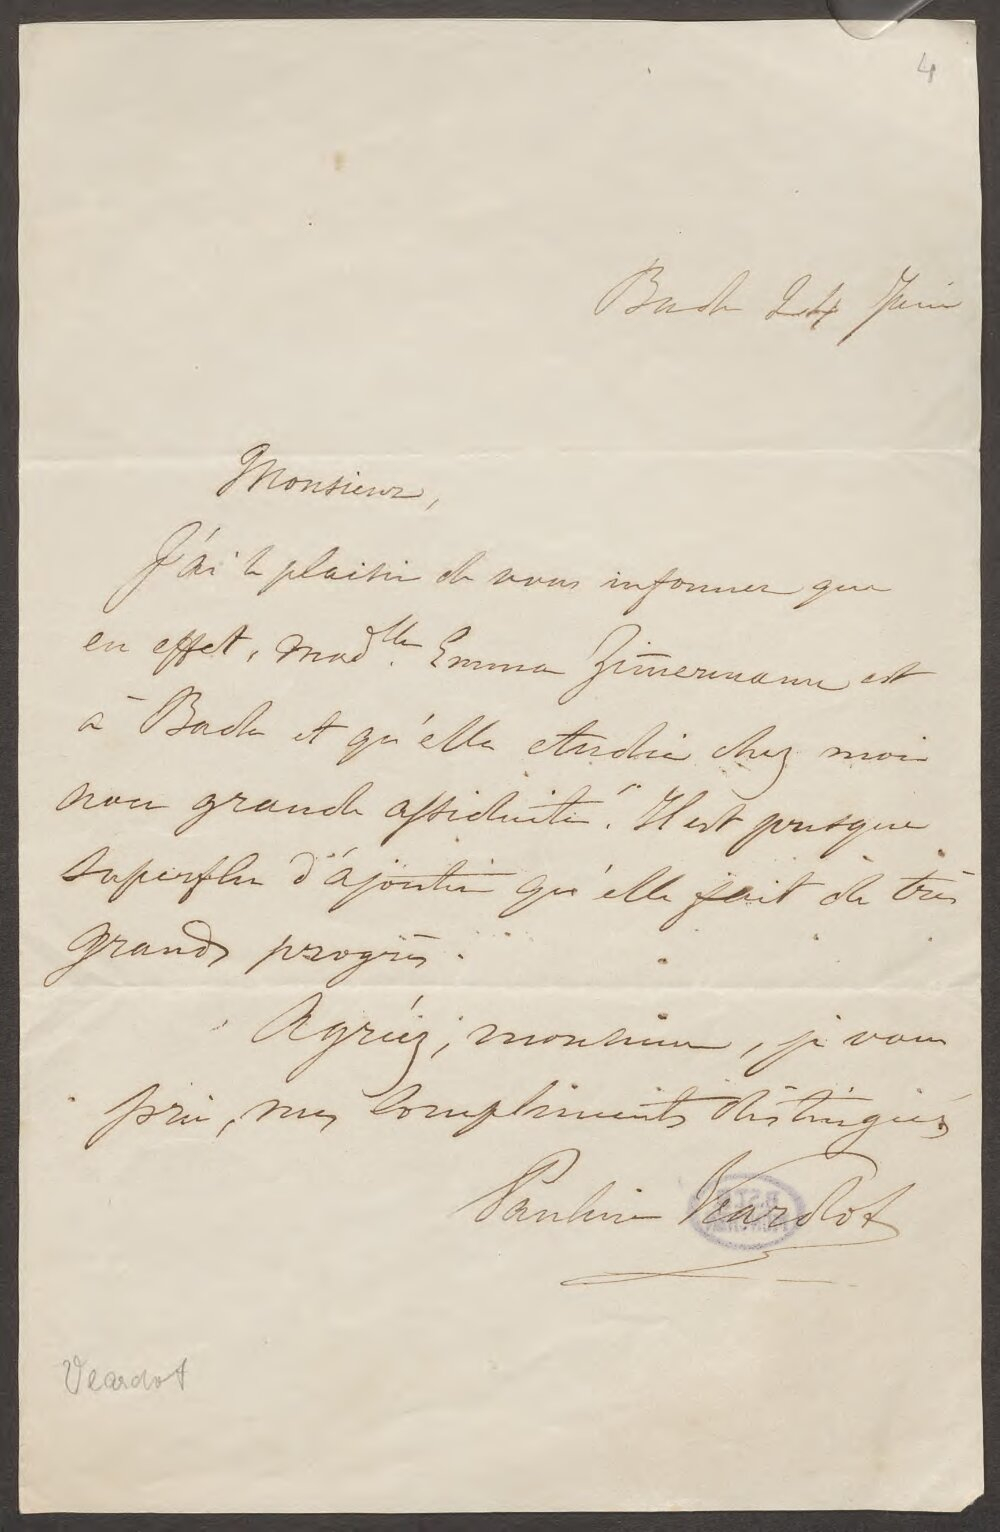 4
Bade 24 Juin
Monsieur,
J'ai le plaisir de vous informer que
en effet, Madlle. Emma Zim̄ermann est
à Bade et qu'elle étudie chez moi
avec grande assiduité. Il est presque
superflu d'ajouter qu'elle fait de très
grands progrès.
Agréez, monsieur, je vous
prie, mes compliments distingués
Pauline Viardot
Viardot